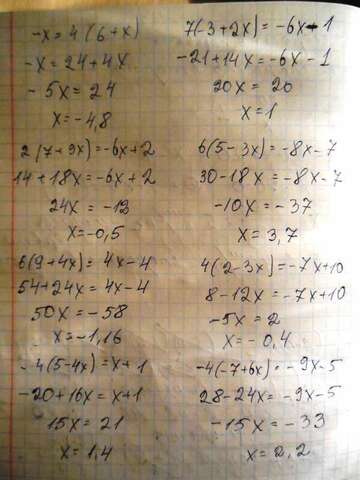 -x=4(6+x)
-x=24+4x
-5x=24
x=-4,8
2(7+9x)=-6x+2
14+18x=-6x+2
24x=-12
x=-0,5
6(9+4x)=4x-4
54+24x=4x-4
50x=-58
x=-1,16
-4(5-4x)=x+1
-20+16x=x+1
15x=21
x=1,4
7(-3+2x)=-6x-1
-21+14x=-6x-1
20x=20
x=1
6(5-3x)=-8x-7
30-18x=-8x-7
-10x=-37
x=3,7
4(2-3x)=-7x+10
8-12x=-7x+10
-5x=2
x=-0,4
-4(-7+6x)=-9x-5
28-24x=-9x-5
-15x=-33
x=2,2